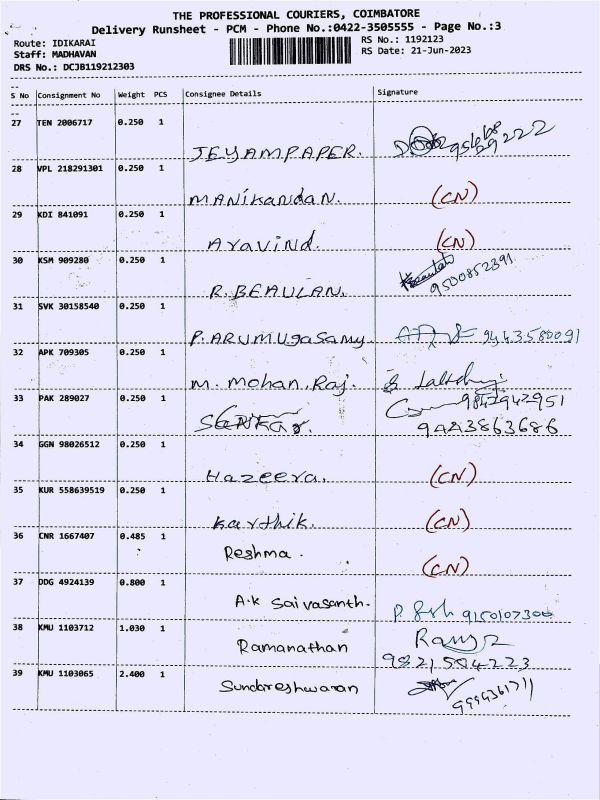 THE PROFESSIONAL COURIERS, COIMBATORE
Delivery Runsheet - PCM - Phone No.:0422-3505555 - Page No.:3
Route: IDIKARAI RS No.: 1192123
Staff: MADHAVAN RS Date: 21-Jun-2023
DRS No.: DCJB119212303
S No Consignment No Weight PCS Consignee Details Signature
27 TEN 2006717 0.250 1
JEYAMPAPER.
28 VPL 218291301 0.250 1
MANikandaN. (CN)
29 KDI 841091 0.250 1
Aravind. (CN)
30 KSM 909280 0.250 1
R. BEAULAN. 9500852391
31 SVK 30158540 0.250 1
P. ARUMUgaSamy. 9443580091
32 APK 709305 0.250 1
M. Mohan. Raj.
33 PAK 289027 0.250 1 9842942951
SANKAR. 9443863686
34 GGN 98026512 0.250 1
Hazeera. (CN)
35 KUR 558639519 0.250 1
Karthik. (CN)
36 CNR 1667407 0.485 1
Reshma. (CN)
37 DDG 4924139 0.800 1
A.K Saivasanth. 9150107300
38 KMU 1103712 1.030 1
Ramanathan
39 KMU 1103065 2.400 1
Sundareshwaran 9994361711